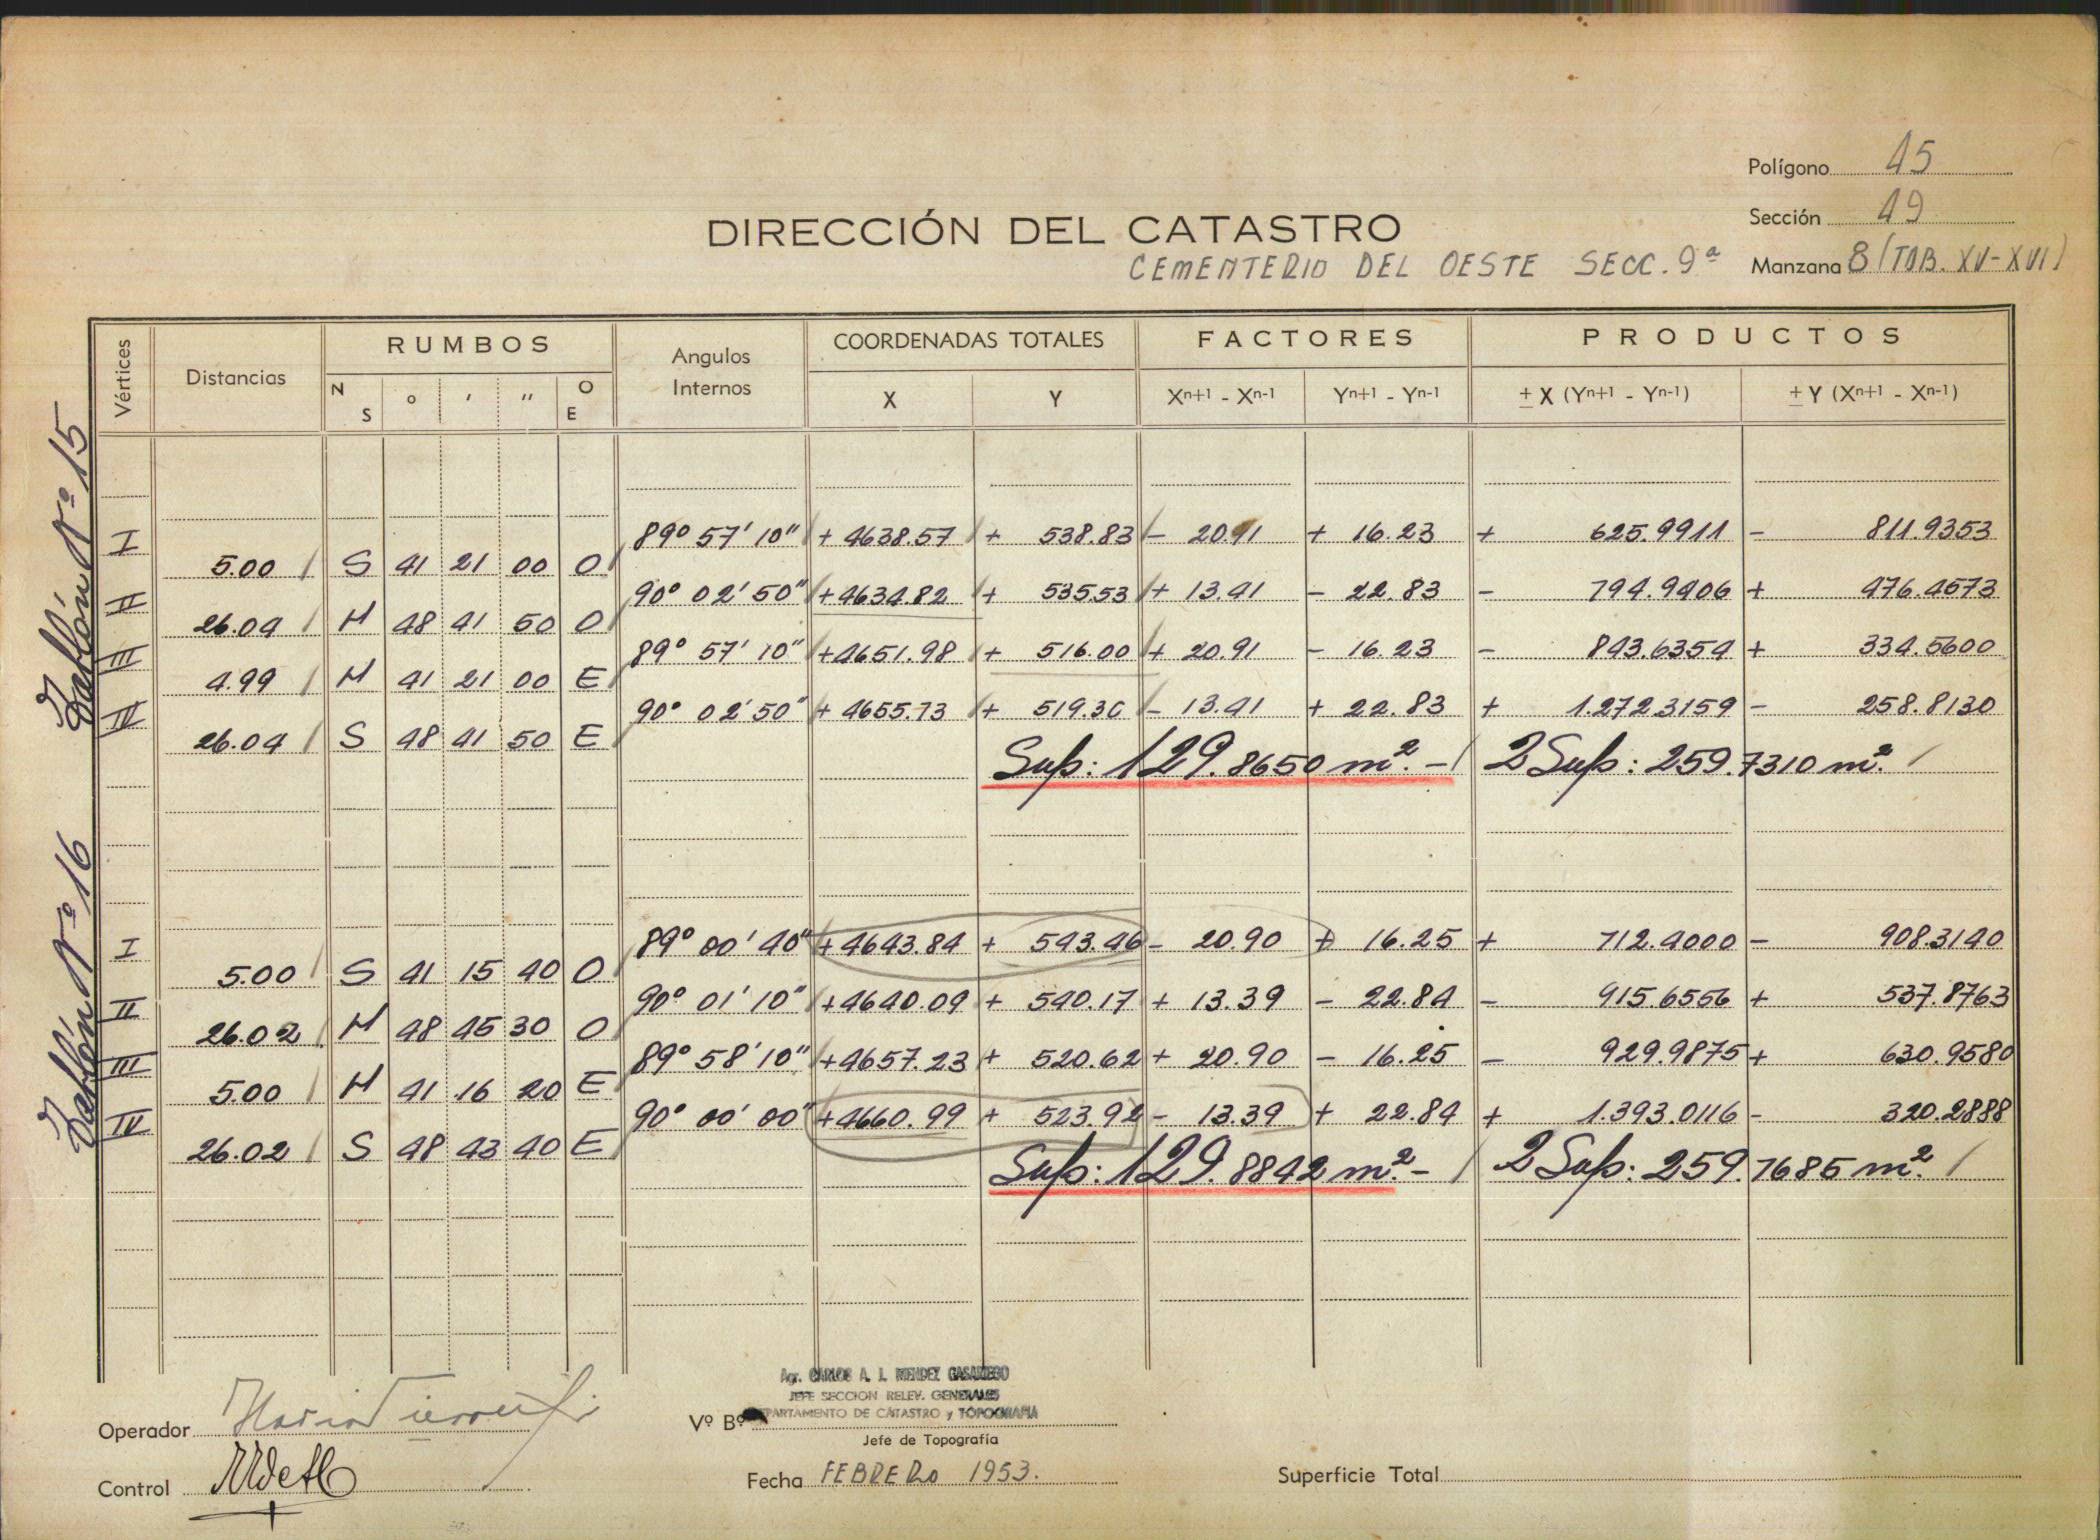 Polígono 45
Sección 49
DIRECCIÓN DEL CATASTRO
CEMENTERIO DEL OESTE SECC. 9ª Manzana 8 (TAB. XV-XVI)
Vértices Distancias RUMBOS Angulos Internos COORDENADAS TOTALES FACTORES PRODUCTOS
N S ° ' " O E X Y Xn+1 - Xn-1 Yn+1 - Yn-1 ± X (Yn+1 - Yn-1) ± Y (Xn+1 - Xn-1)
Tablón Nº 15
I 89° 57' 10" + 4638.57 + 538.83 - 20.91 + 16.23 + 625.9911 - 811.9353
5.00 S 41 21 00 O
II 90° 02' 50" + 4634.82 + 535.53 + 13.41 - 22.83 - 794.9406 + 476.4573
26.04 N 48 41 50 O
III 89° 57' 10" + 4651.98 + 516.00 + 20.91 - 16.23 - 843.6354 + 334.5600
4.99 N 41 21 00 E
IV 90° 02' 50" + 4655.73 + 519.30 - 13.41 + 22.83 + 1.272.3159 - 258.8130
26.04 S 48 41 50 E
Sup: 129.8650 m². - 2 Sup: 259.7310 m².
Tablón Nº 16
I 89° 00' 40" + 4643.84 + 543.46 - 20.90 + 16.25 + 712.4000 - 908.3140
5.00 S 41 15 40 O
II 90° 01' 10" + 4640.09 + 540.17 + 13.39 - 22.84 - 915.6556 + 537.8763
26.02 N 48 45 30 O
III 89° 58' 10" + 4657.23 + 520.62 + 20.90 - 16.25 - 929.9875 + 430.9580
5.00 N 41 16 20 E
IV 90° 00' 00" + 4660.99 + 523.92 - 13.39 + 22.84 + 1.393.0116 - 320.2888
26.02 S 48 43 40 E
Sup: 129.8842 m². - 2 Sup: 259.7685 m².
Agr. CARLOS A. J. MENDEZ CASARIEGO
JEFE SECCION RELEV. GENERALES
DEPARTAMENTO DE CATASTRO y TOPOGRAFIA
Operador
Vº Bº
Jefe de Topografía
Control
Fecha FEBRERO 1953.
Superficie Total